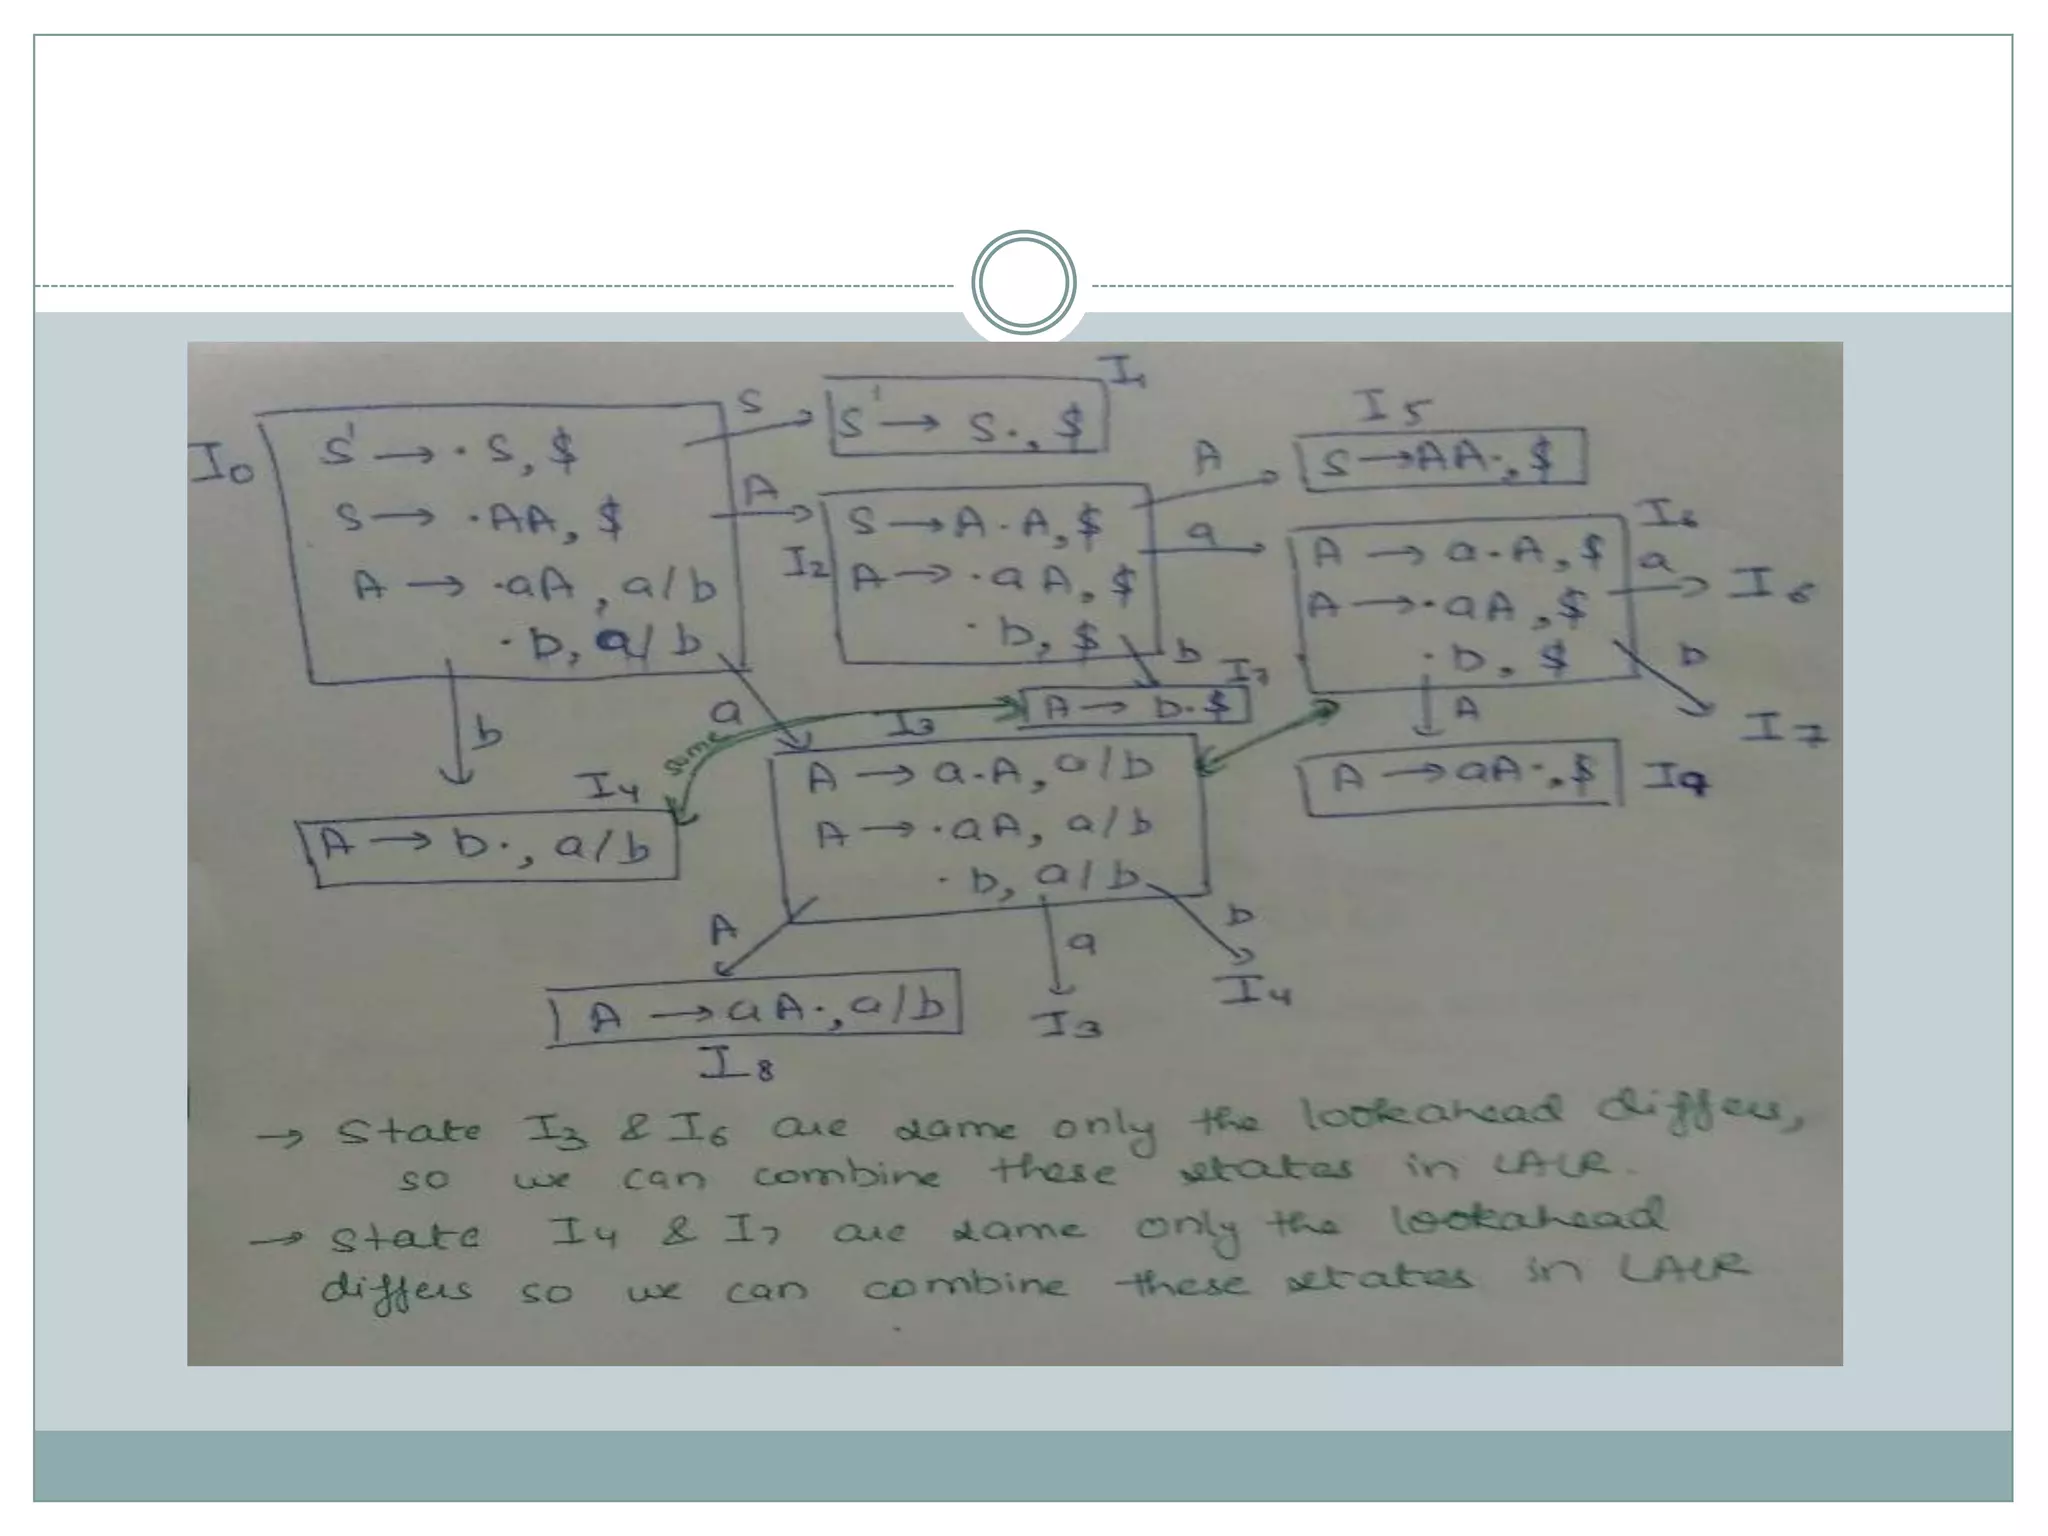 I1
I0
S' → ·S, $
S → ·AA, $
A → ·aA, a/b
·b, a/b
S
S' → S·, $
A
I2
S → A·A, $
A → ·aA, $
·b, $
A
I5
S → AA·, $
a
I6
A → a·A, $
A → ·aA, $
·b, $
a
I6
b
I7
A
A → aA·, $
I9
b
I7
A → b·$
b
I4
A → b·, a/b
same
a
I3
A → a·A, a/b
A → ·aA, a/b
·b, a/b
A
A → aA·, a/b
I8
a
I3
b
I4
→ State I3 & I6 are same only the lookahead differs,
so we can combine these states in LALR.
→ State I4 & I7 are same only the lookahead
differs so we can combine these states in LALR